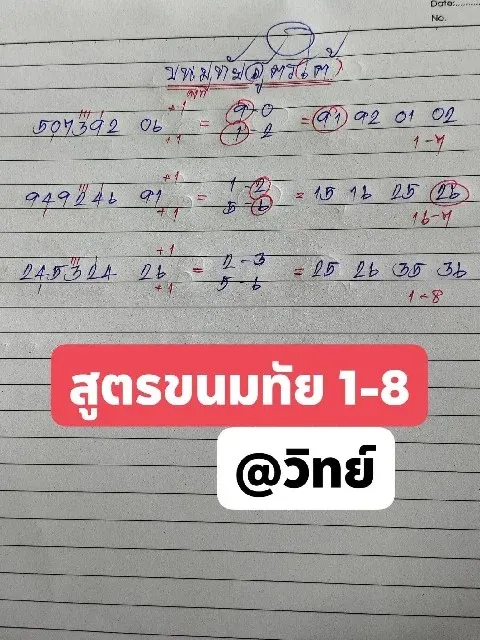 Date:
No.
ขนมทัย สูตร(เต้)
507392 06 +1 +1 = 9-0 1-2 = 91 92 01 02
1-7
949246 91 +1 +1 = 1-2 5-6 = 15 16 25 26
16-7
245324 26 +1 +1 = 2-3 5-6 = 25 26 35 36
1-8
สูตรขนมทัย 1-8
@วิทย์